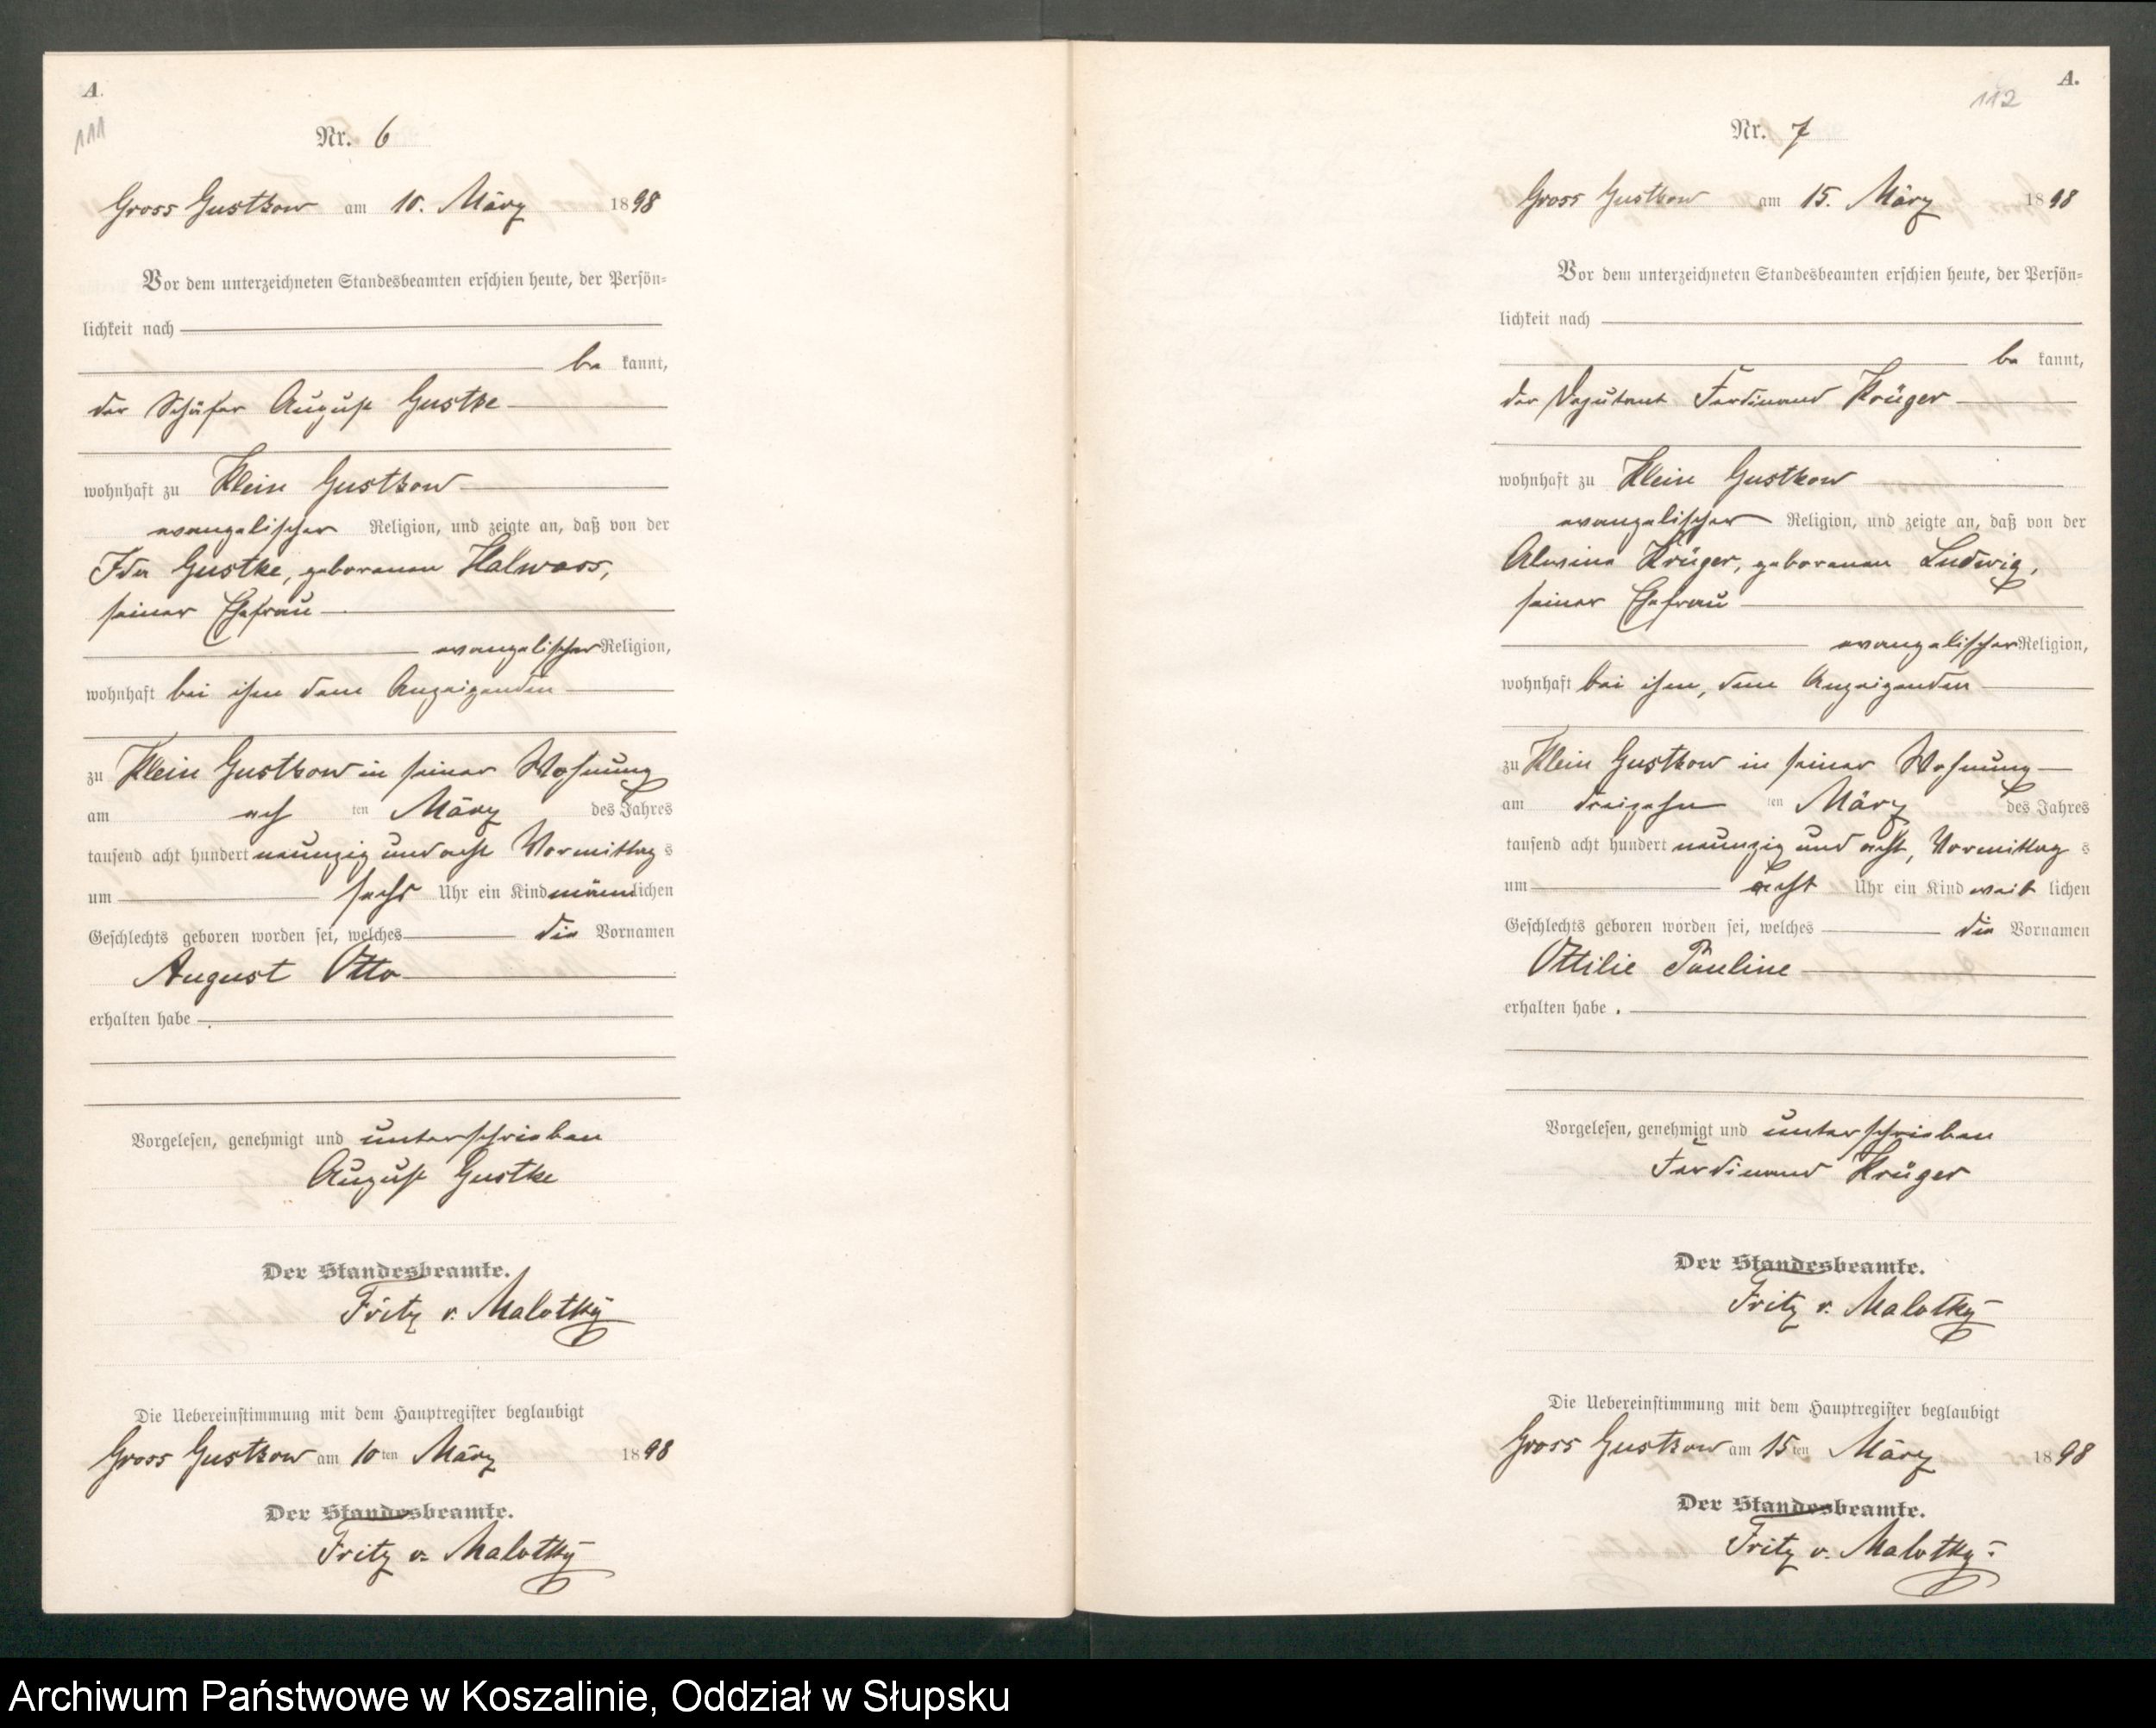 A.
111
Nr. 6
Gross Gustkow am 10. März 1898
Vor dem unterzeichneten Standesbeamten erschien heute, der Persön-
lichkeit nach
be kannt,
der Schäfer August Gustke
wohnhaft zu Klein Gustkow
evangelischer Religion, und zeigte an, daß von der
Ida Gustke, geborenen Halwass,
seiner Ehefrau
evangelischer Religion,
wohnhaft bei ihm dem Anzeigenden
zu Klein Gustkow in seiner Wohnung
am ach ten März des Jahres
tausend acht hundert neunzig und acht Vormittag s
um sechs Uhr ein Kind männlichen
Geschlechts geboren worden sei, welches die Vornamen
August Otto
erhalten habe.
Vorgelesen, genehmigt und unterschrieben
August Gustke
Der Standesbeamte.
Fritz v. Malotky
Die Uebereinstimmung mit dem Hauptregister beglaubigt
Gross Gustkow am 10ten März 1898
Der Standesbeamte.
Fritz v. Malotky
A.
112
Nr. 7
Gross Gustkow am 15. März 1898
Vor dem unterzeichneten Standesbeamten erschien heute, der Persön-
lichkeit nach
be kannt,
der Deputant Ferdinand Krüger
wohnhaft zu Klein Gustkow
evangelischer Religion, und zeigte an, daß von der
Alwine Krüger, geborenen Ludwig,
seiner Ehefrau
evangelischer Religion,
wohnhaft bei ihm, dem Anzeigenden
zu Klein Gustkow in seiner Wohnung
am dreizehn ten März des Jahres
tausend acht hundert neunzig und acht, Vormittag s
um acht Uhr ein Kind weib lichen
Geschlechts geboren worden sei, welches die Vornamen
Ottilie Pauline
erhalten habe.
Vorgelesen, genehmigt und unterschrieben
Ferdinand Krüger
Der Standesbeamte.
Fritz v. Malotky
Die Uebereinstimmung mit dem Hauptregister beglaubigt
Gross Gustkow am 15ten März 1898
Der Standesbeamte.
Fritz v. Malotky
Archiwum Państwowe w Koszalinie, Oddział w Słupsku